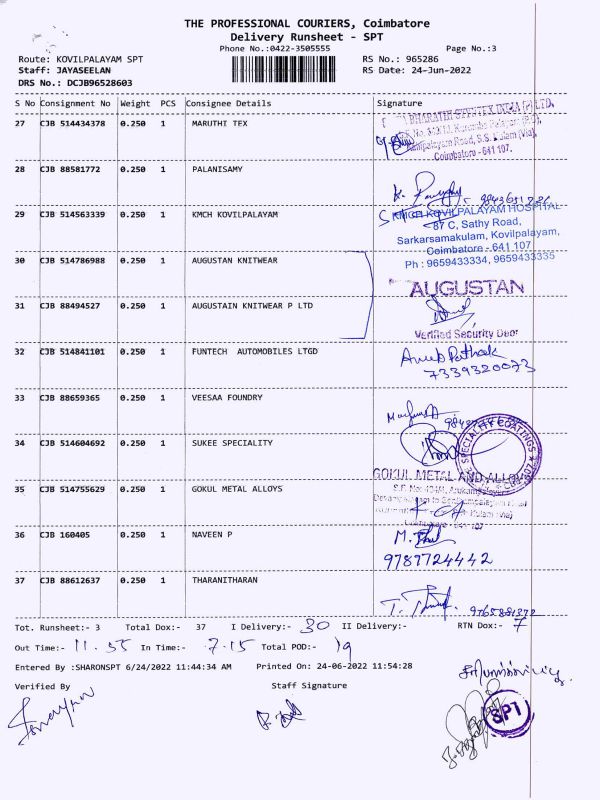 THE PROFESSIONAL COURIERS, Coimbatore
Delivery Runsheet - SPT
Phone No.:0422-3505555
Page No.:3
Route: KOVILPALAYAM SPT
RS No.: 965286
Staff: JAYASEELAN
RS Date: 24-Jun-2022
DRS No.: DCJB96528603
S No Consignment No Weight PCS Consignee Details Signature
27 CJB 514434378 0.250 1 MARUTHI TEX
Coimbatore - 641 107.
28 CJB 88581772 0.250 1 PALANISAMY
29 CJB 514563339 0.250 1 KMCH KOVILPALAYAM
KMCH KOVILPALAYAM HOSPITAL
87 C, Sathy Road,
Sarkarsamakulam, Kovilpalayam,
Coimbatore - 641 107
Ph : 9659433334, 9659433335
30 CJB 514786988 0.250 1 AUGUSTAN KNITWEAR
AUGUSTAN
31 CJB 88494527 0.250 1 AUGUSTAIN KNITWEAR P LTD
Verified Security Door
32 CJB 514841101 0.250 1 FUNTECH AUTOMOBILES LTGD
Anub Pathak
7339320073
33 CJB 88659365 0.250 1 VEESAA FOUNDRY
34 CJB 514604692 0.250 1 SUKEE SPECIALITY
SPECIALITY COATINGS
GOKUL METAL AND ALLOYS
35 CJB 514755629 0.250 1 GOKUL METAL ALLOYS
36 CJB 160405 0.250 1 NAVEEN P
9787724442
37 CJB 88612637 0.250 1 THARANITHARAN
Tot. Runsheet:- 3 Total Dox:- 37 I Delivery:- 30 II Delivery:- RTN Dox:- 7
Out Time:- 11.55 In Time:- 7.15 Total POD:- 19
Entered By :SHARONSPT 6/24/2022 11:44:34 AM Printed On: 24-06-2022 11:54:28
Verified By Staff Signature
SPT